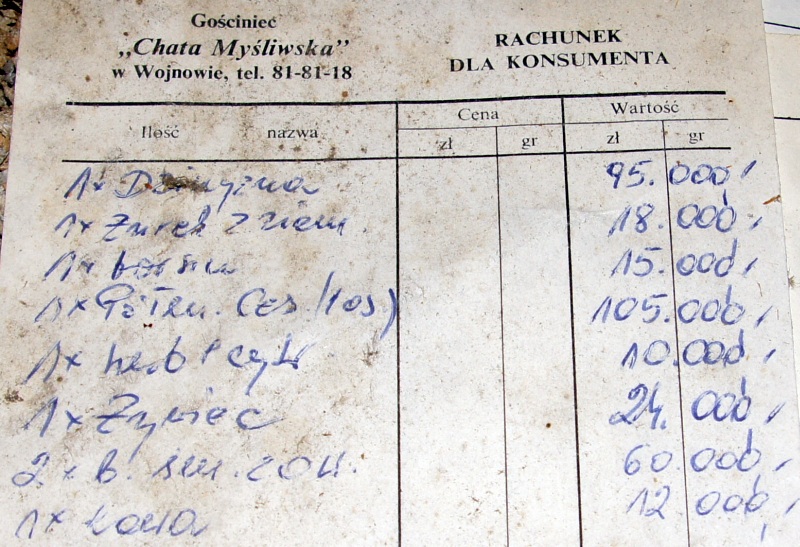 Gościniec
„Chata Myśliwska”
w Wojnowie, tel. 81-81-18
RACHUNEK
DLA KONSUMENTA
Ilość nazwa Cena Wartość
zł gr zł gr
1x Dziczyzna 95.000,
1x Żurek z ziem. 18.000,
1x 15.000,
1x Półm. Ces. (1os.) 105.000,
1x herb + cytr 10.000,
1x Żywiec 24.000,
2x B. 60.000,
1x kawa 12.000,